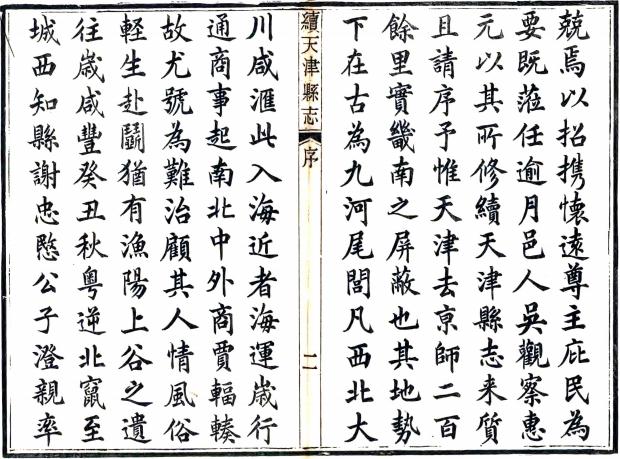 兢焉以招攜懷遠尊主庇民為
要既蒞任逾月邑人吳觀察惠
元以其所修續天津縣志来質
且請序予惟天津去京師二百
餘里實畿南之屏蔽也其地勢
下在古為九河尾閭凡西北大
續天津縣志
序
二
川咸滙此入海近者海運歲行
通商事起南北中外商賈輻輳
故尤號為難治顧其人情風俗
輕生赴鬭猶有漁陽上谷之遺
往歲咸豐癸丑秋粵逆北竄至
城西知縣謝忠愍公子澄親率